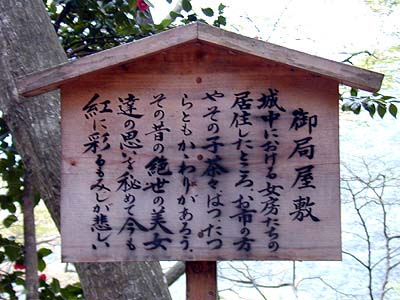 御局屋敷
城中における女房たちの
居住したところ、お市の方
やその子茶々、はつ、たつ
らともかゝわりがあろう、
その昔の絶世の美女
達の思いを秘めて今も
紅に彩るもみじが悲しい